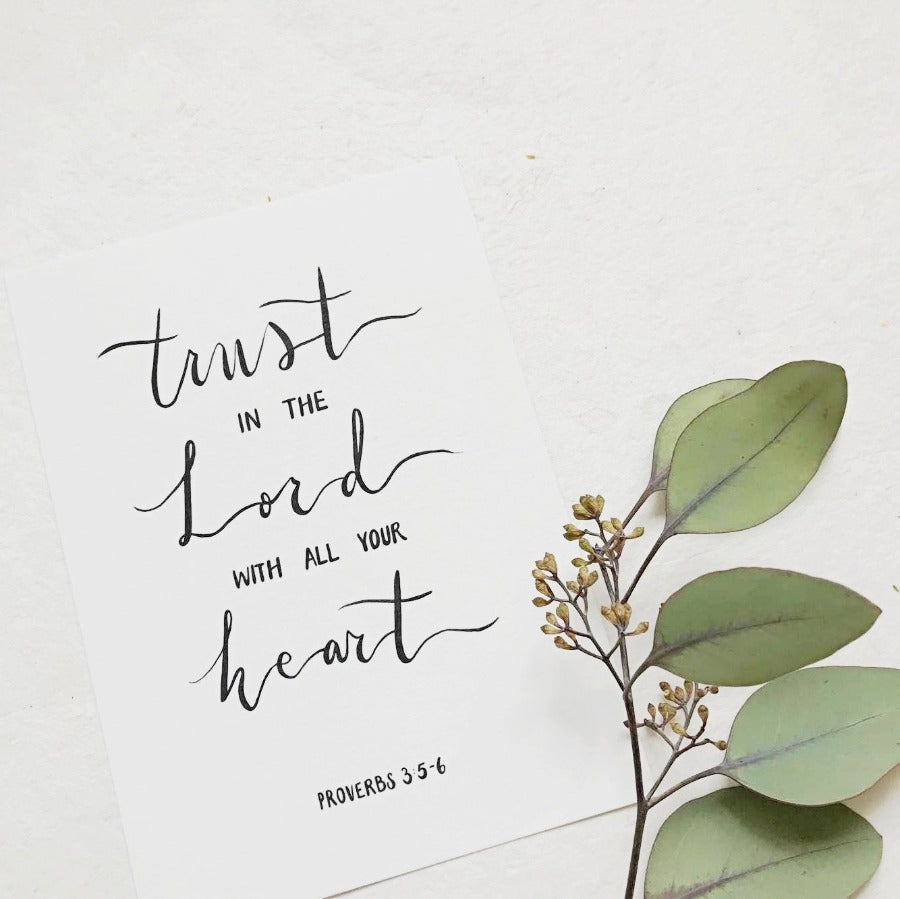 trust
IN THE
Lord
WITH ALL YOUR
heart
PROVERBS 3:5-6